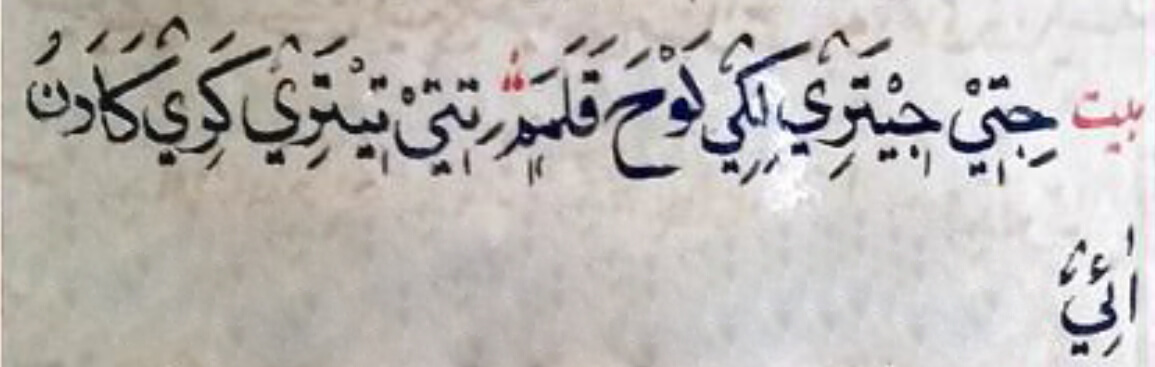 بيت جِتِيْ جِيْتَرِيْ لِکِيْ لَوْحَ قَلَمَ ۾ تِتِيْ تِيْتَرِيْ کَوِيْ کَادَنُ
اُئِيْ